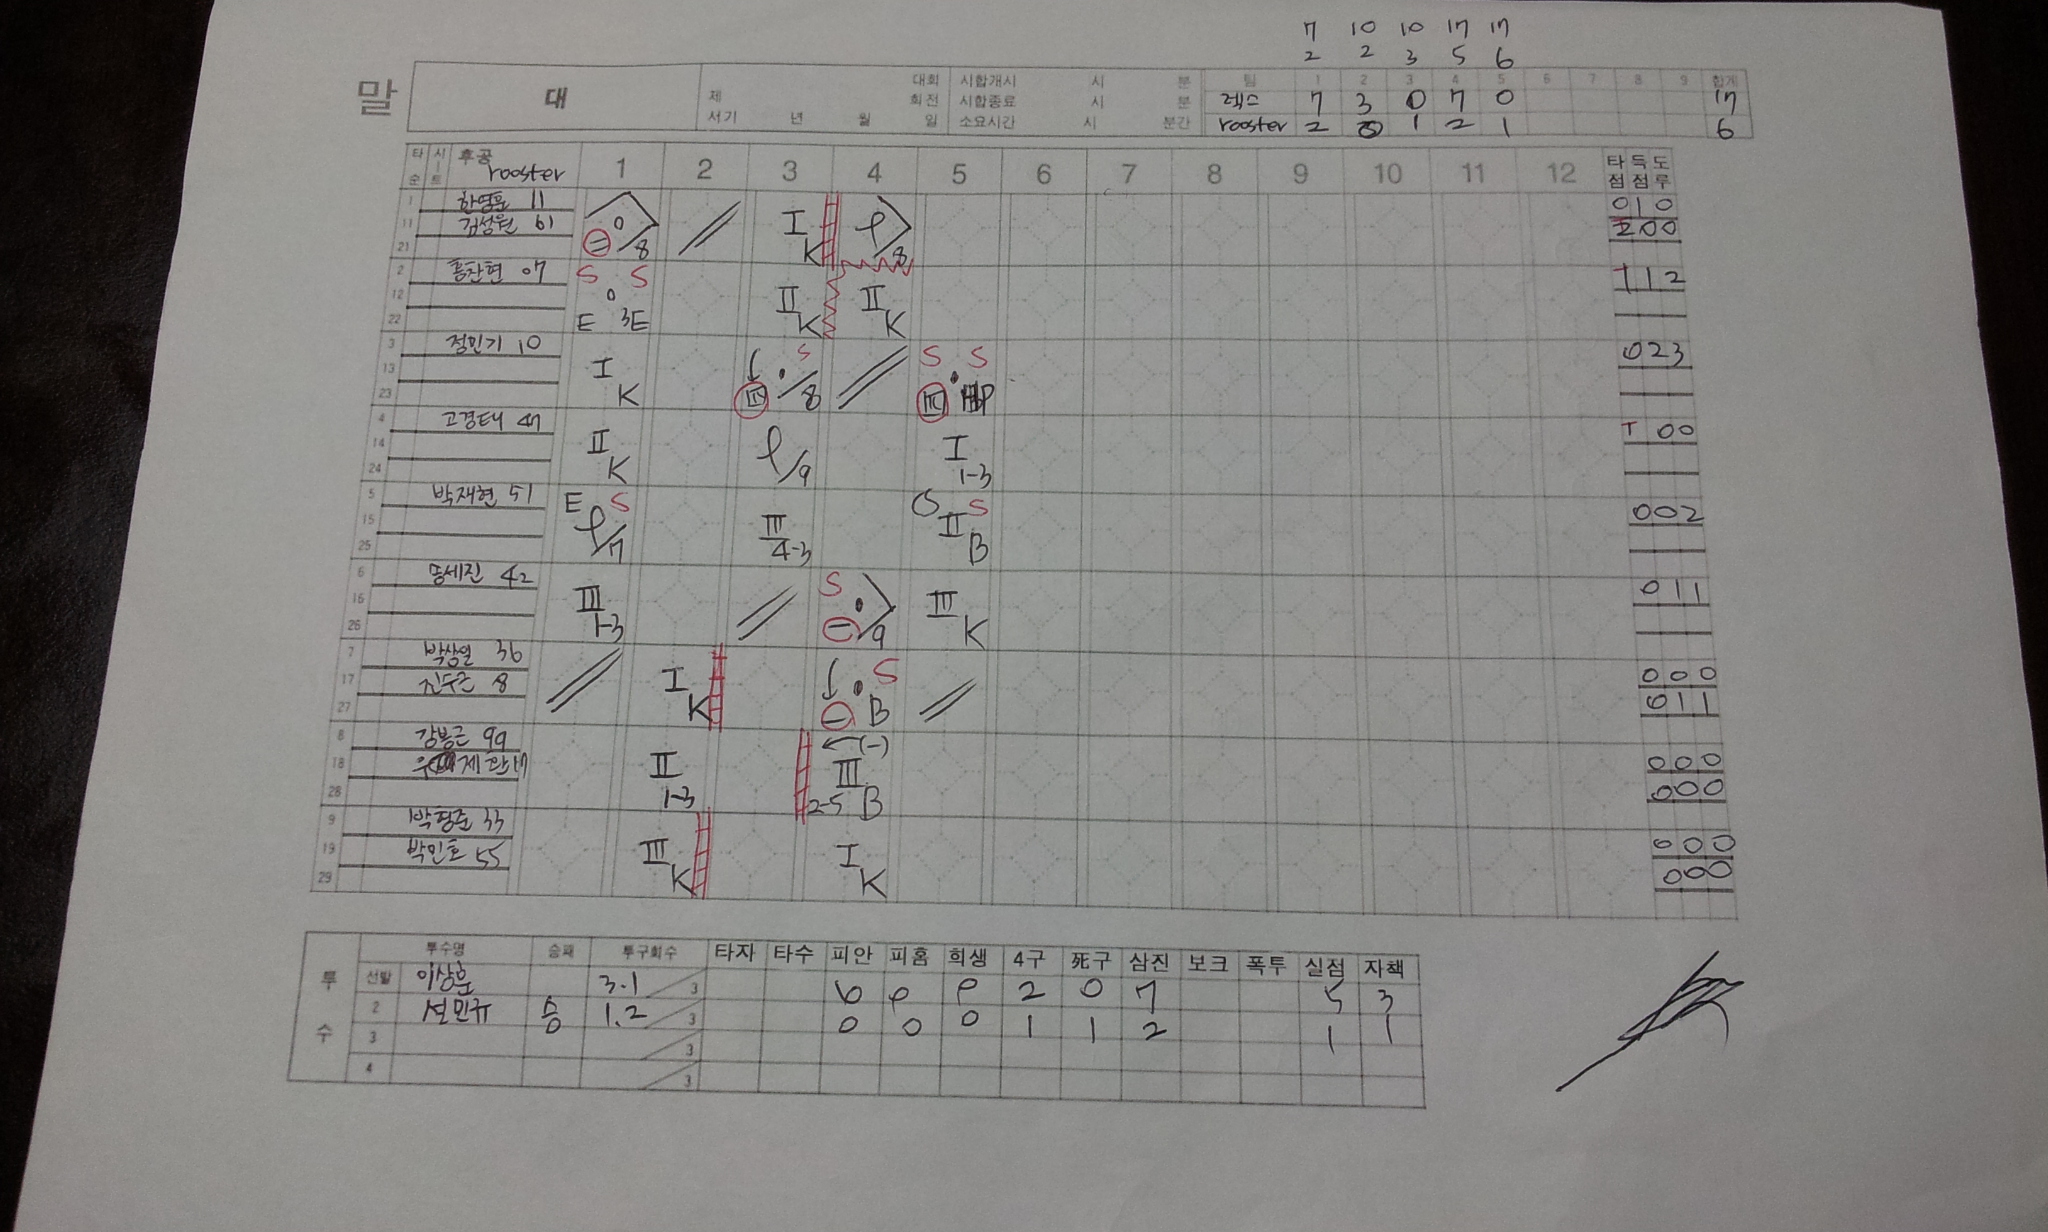 7 10 10 17 17
2 2 3 5 6
말 대 대회 시합개시 시 분 팀 1 2 3 4 5 6 7 8 9 합계
제 회전 시합종료 시 분 렉스 7 3 0 7 0 17
서기 년 월 일 소요시간 시 분간 rooster 2 0 1 2 1 6
타순 시트 후공 rooster 1 2 3 4 5 6 7 8 9 10 11 12 타점 득점 도루
1 한영훈 11 0 1 0
11 김성원 61 I K 0 0
21 8 8
2 홍찬현 07 S S 1 2
12 II K II K
22 E 3E
3 정민기 10 S S S 0 2 3
13 I K
23 III 8 III HP
4 고경태 47 0 0
14 II K I
24 9 1-3
5 박재현 51 E S S 0 0 2
15 III II B
25 7 4-3
6 송세진 42 S 0 1 1
16 III III K
26 1-3 9
7 박상일 36 S 0 0 0
17 진두근 8 I K B 0 1 1
27
8 강봉근 99 (-) 0 0 0
18 II III 0 0 0
28 1-3 2-5 B
9 박형준 33 0 0 0
19 박민호 55 III K I K 0 0 0
29
투수 투수명 승패 투구회수 타자 타수 피안 피홈 희생 4구 死구 삼진 보크 폭투 실점 자책
선발 이상훈 3.1 3 6 0 0 2 0 7 5 3
2 선민규 승 1.2 3 0 0 0 1 1 2 1 1
3 3
4 3